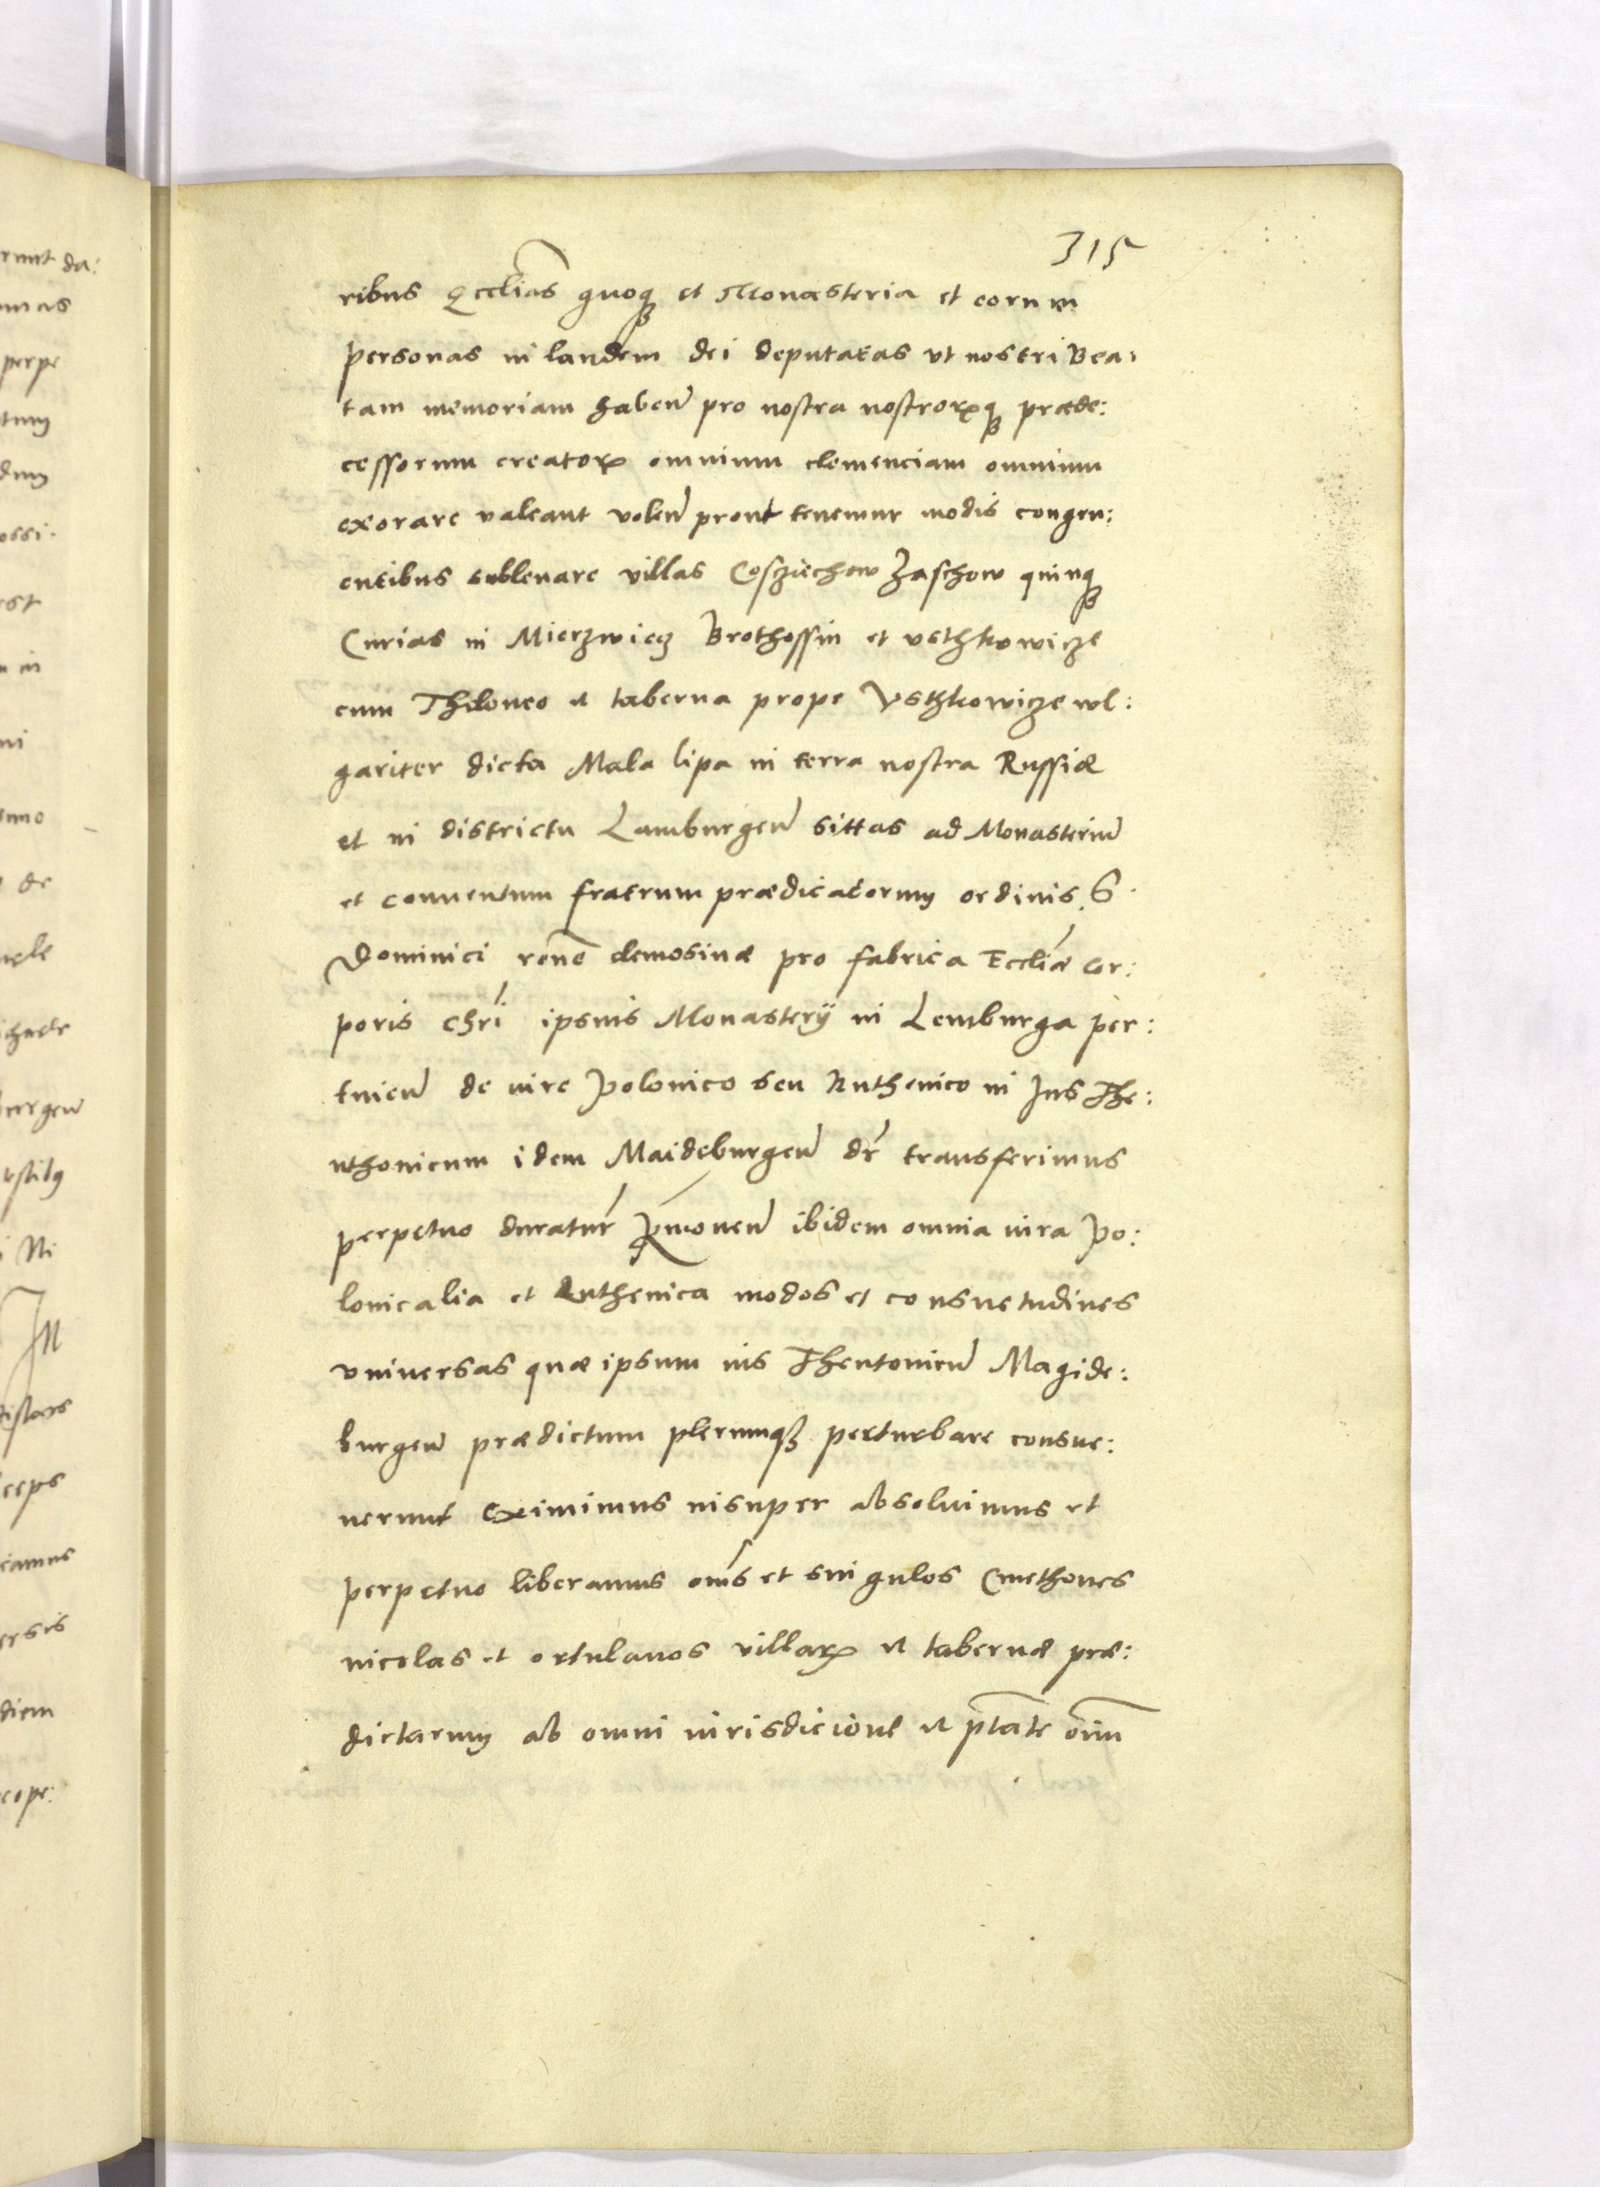 315
ribus Eccliãs quoqꝫ et Monasteria et eorum
personas in laudem dei deputatas vt nostri Bea:
tam memoriam haben̄ pro nostra nostroꝝqꝫ præde:
cessorum creatoꝝ omnium clemenciam omnium
exorare valeant volen̄ prout tenemur modis congru:
entibus subleuare villas Cosziechow Zaschow quinqꝫ
Curias in Mierzwicz Brothossin et vsthkowicze
cum Theloneo et taberna prope Vsthkowicze wl:
gariter dicta Mala lipa in terra nostra Russiæ
et in districtu Lamburgen̄ sittas ad Monasteriū
et conuentum fratrum prædicatorum ordinis S.
Dominici rōne elemosinæ pro fabrica Eccliæ Cor:
poris Chri ipsius Monasterÿ in Lemburga per:
tinen̄ de iure Polonico seu Ruthenico in Jus The:
uthonicum idem Maideburgen̄ dr̄ transferimus
perpetuo duratur̄ Rmouen̄ ibidem omnia iura Po:
lonicalia et Ruthenica modos et consuetudines
vniuersas quæ ipsum ius Theutonicū Magide:
burgen̄ prædictum plerumqꝫ perturbare consue:
uerunt eximimus insuper absoluimus et
perpetuo liberamus oms̄ et singulos Cmethones
incolas et ortulanos villaꝝ et tabernæ præ:
dictarum ab omni iurisdicione et ptāte oīm
runt da:
mas
perpe
tum
dum
ossi.
est
in
ni
nno
de
chaele
burgen̄
Ni
In
ceps
camus
ersis
diem
cope: